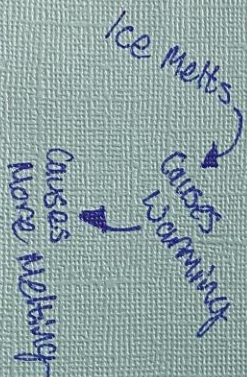 Ice Melts
Causes
Warming
Causes
More Melting